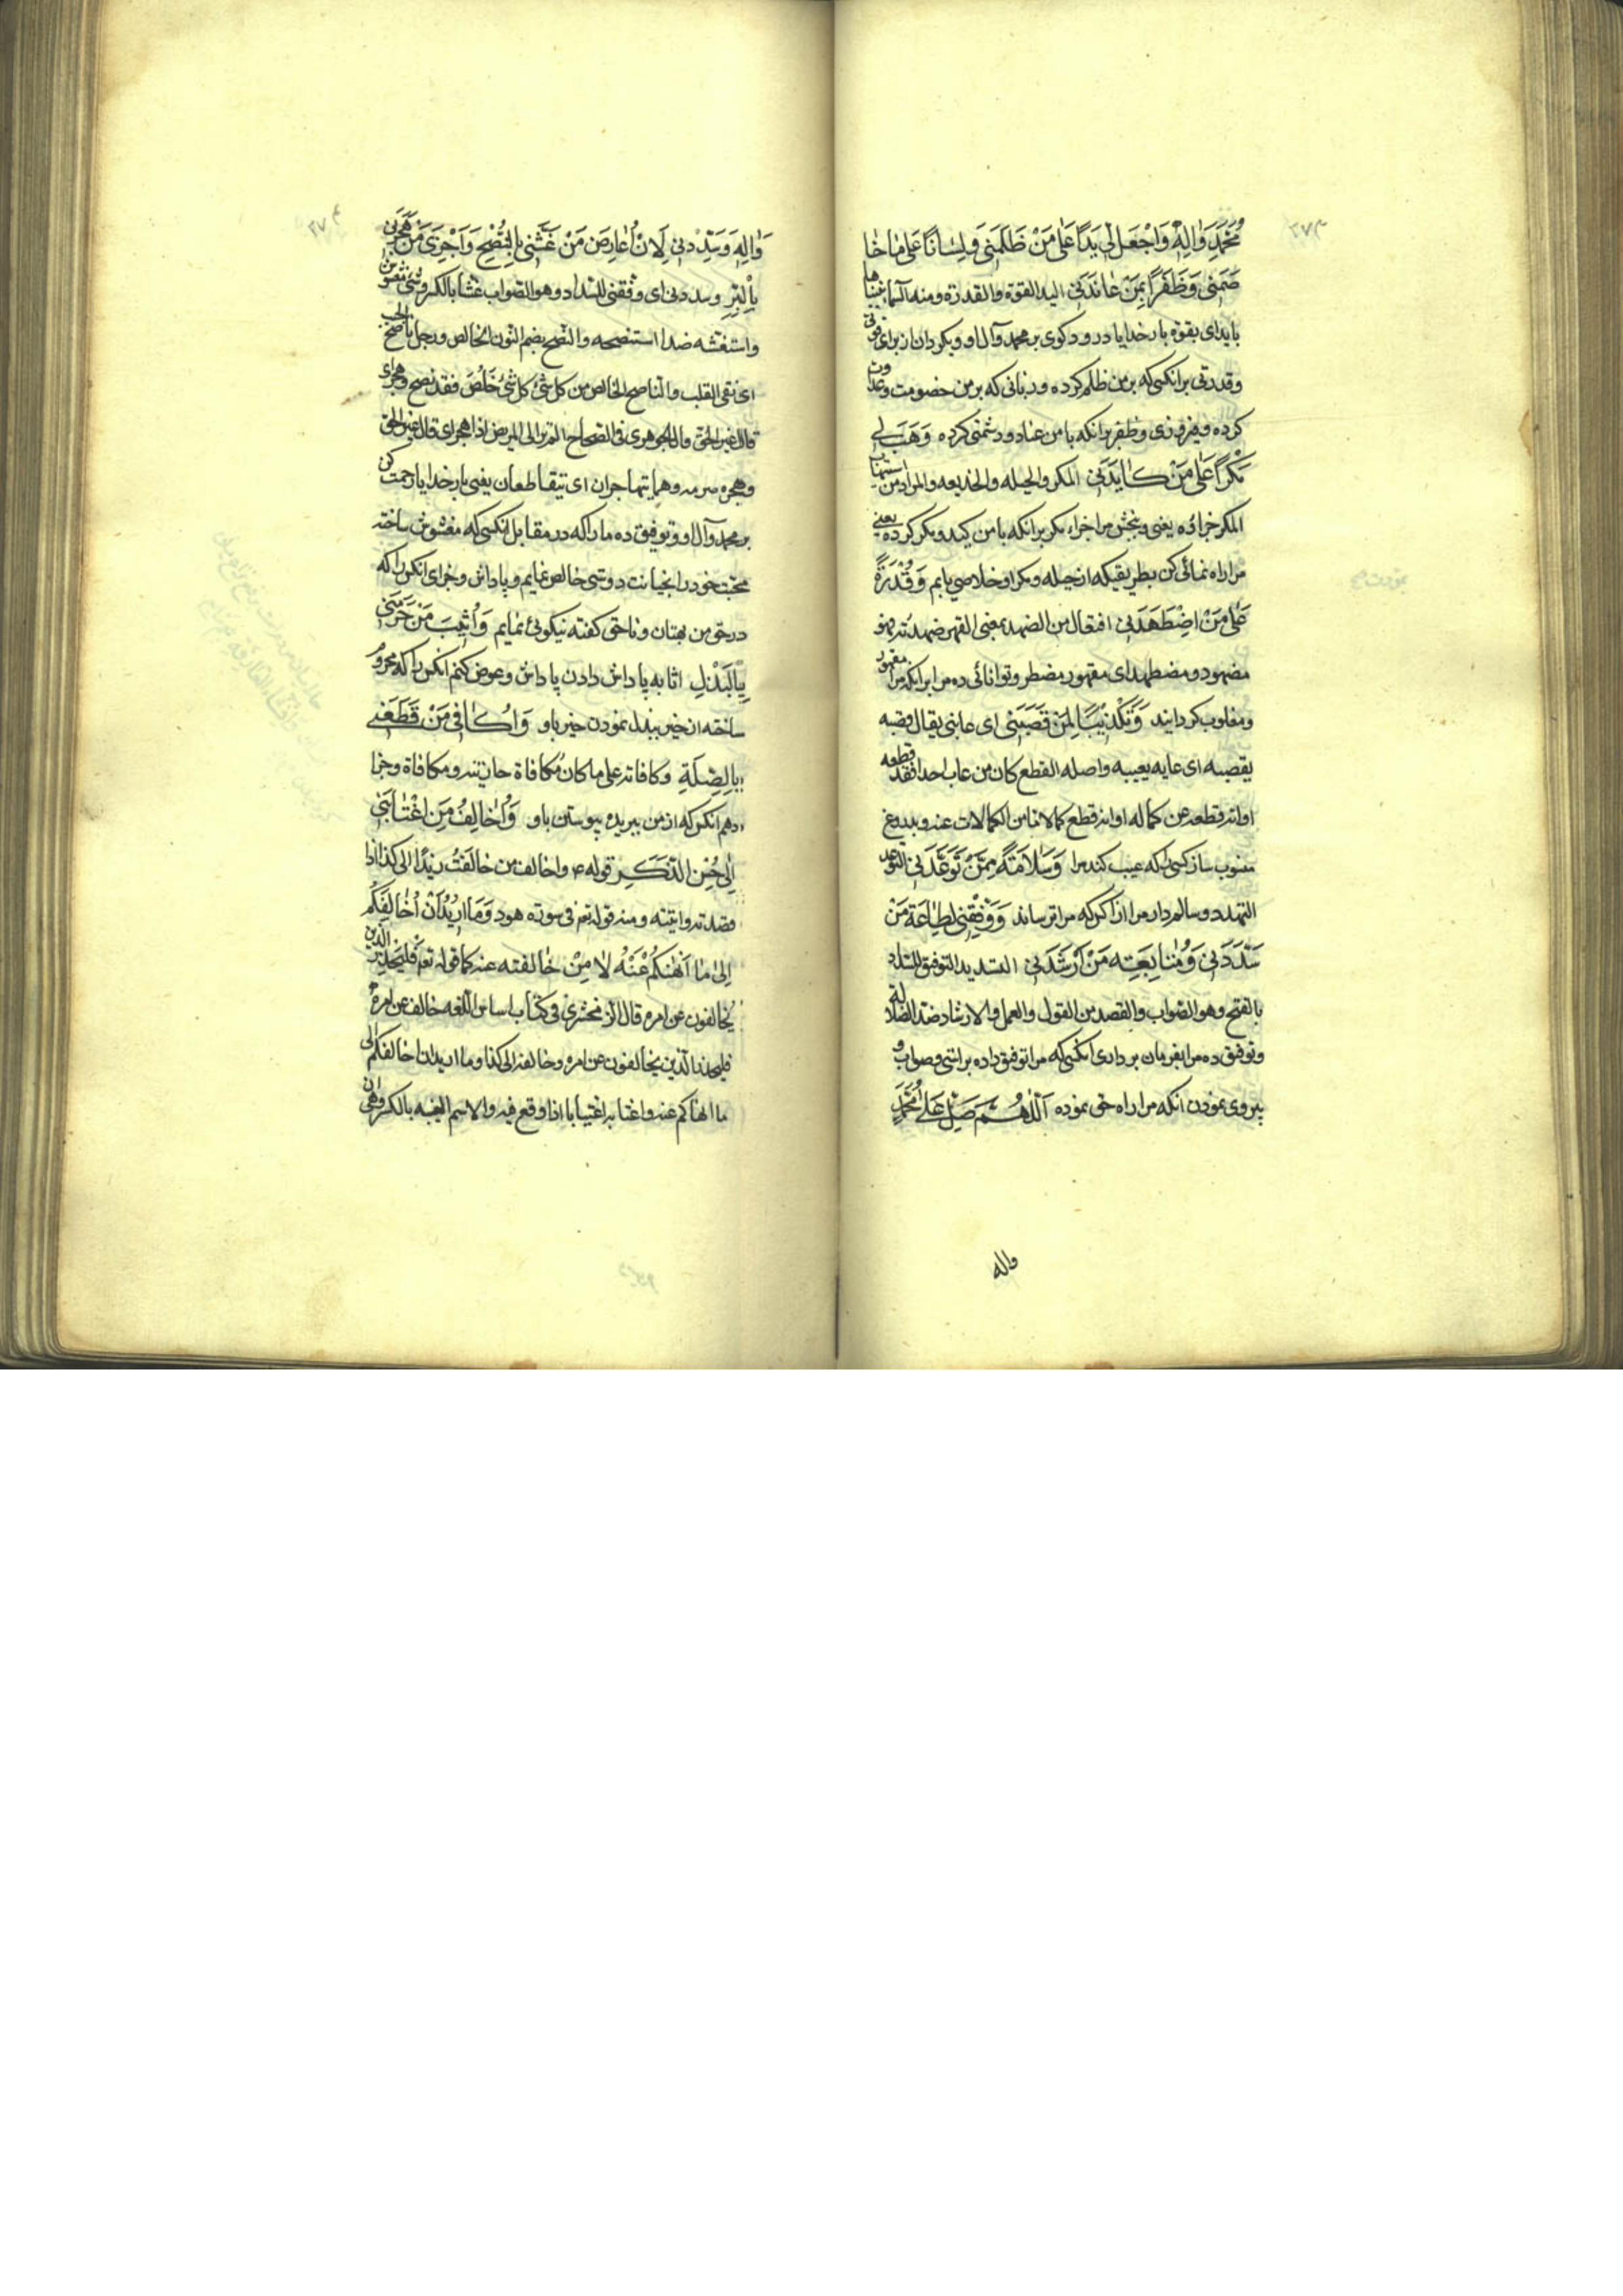 ۲۷۳
مُحَمَّدٍ وَاٰلِهِ وَاجْعَل لِّي يَدًا عَلٰى مَنْ ظَلَمَنِي وَلِسَانًا عَلٰى مَا خَا
صَمَنِي وَظَفَرًا بِمَنْ عَانَدَنِي اليد القوة والقدرة ومنه السماء بنيناها
بايد اى بقوة بار خدايا درود كوى بر محمد وآل او وبكردان از براى من قوتى
وقدرتى بر انكسى كه بر من ظلم كرده وزبانى كه بر من خصومت وعداوت
كرده وفيروزى وظفر بر انكه با من عناد ودشمنى كرده وَهَبْ لِي
مَكْرًا عَلٰى مَنْ كَايَدَنِي المكر والحيله والخديعه والمراد من
المكر جزاؤه يعنى وبخش مرا جزاء مكر بر انكه با من كيد ومكر كرده يعنى
مرا راه نمائى كن بطريقيكه از حيله ومكر او خلاصى يابم وَقُدْرَةً
عَلٰى مَنِ اضْطَهَدَنِي افتعال من الضهد بمعنى القهر ضهدته فهو
مضهود ومضطهد اى مقهور مضطر وتوانائى ده مرا بر انكه مرا مقهور
ومغلوب كردانيد وَتَكْذِيبًا لِمَنْ قَصَبَنِي اى عابنى يقال قصبه
يقصبه اى عابه يعيبه واصله القطع كان من عاب احدا فقد قطعه
او انه قطعه عن كماله او انه قطع كمالا من الكمالات عنه وبدروغ
منسوب ساز كسى را كه عيب كند مرا وَسَلَامَةً مِمَّنْ تَوَعَّدَنِي التوعد
التهدد وسالم دار مرا از آنكس كه مرا ترساند وَوَفِّقْنِي لِطَاعَةِ مَنْ
سَدَّدَنِي وَمُتَابَعَةِ مَنْ اَرْشَدَنِي التسديد التوفيق للسداد
بالفتح وهو الصواب والقصد من القول والعمل والارشاد ضد الضلالة
وتوفيق ده مرا بفرمان بردارى انكسى كه مرا توفيق داده براستى وصواب و
پيروى نمودن انكه مرا راه حق نموده اَللّٰهُمَّ صَلِّ عَلٰى مُحَمَّدٍ
واله
۲۷۴
وَاٰلِهِ وَسَدِّدْنِي لِاَنْ اُعَارِضَ مَنْ غَشَّنِي بِالنُّصْحِ وَاَجْزِيَ مَنْ هَجَرَنِي
بِالْبِرِّ وسددنى اى وفقنى للسداد وهو الصواب غشا بالكسر
واستغشه ضد استنصحه والنصح بضم النون الخالص ورجل ناصح الجيب
اى نقى القلب والناصح الخالص من كل شئ كل شئ خَلُصَ فقد نصح وهجر اى
قال غير الحق قال الجوهرى فى الصحاح الم تر الى المريض اذا هجر اى قال غير الحق
وهجره صرمه وهما يتهاجران اى يتقاطعان يعنى بار خدايا رحمت كن
بر محمد وآل او وتوفيق ده ما را كه در مقابل انكسى كه مغشوش ساخته
محبت خود را بخيانت دوستى خالص نمايم وپاداش وجزاى انكس را كه
در حق من بهتان وناحق كفته نيكوئى نمايم وَاُثِيبَ مَنْ حَرَمَنِي
بِالْبَذْلِ اثابه پاداش دادن پاداش وعوض كنم انكس را كه محروم
ساخته از خير ببذل نمودن خير باو وَاُكَافِيَ مَنْ قَطَعَنِي
بِالصِّلَةِ وكافاته على ما كان مُكافاة جازيته ومكافاة وجزا
دهم انكس كه از من ببريده بپيوستن باو وَاُخَالِفَ مَنِ اغْتَابَنِي
اِلٰى حُسْنِ الذِّكْرِ قوله ع واخالف من خالفت زيدا الى كذا اذا
قصدته وابيته ومنه قوله تعم فى سورة هود وَمَا اُرِيدُ اَنْ اُخَالِفَكُمْ
اِلٰى مَا اَنْهٰىكُمْ عَنْهُ لا من خالفته عنه كما قوله تعم فَلْيَحْذَرِ الَّذِينَ
يُخالفون عن امره قال الزمخشرى فى كتاب اساس اللغه خالف عن امره
فليحذر الذين يخالفون عن امره وخالفه الى كذا وما اريد ان اخالفكم الى
ما انهاكم عنه واغتابه اغتيابا اذا وقع فيه والاسم الغيبه بالكسر وهى ان